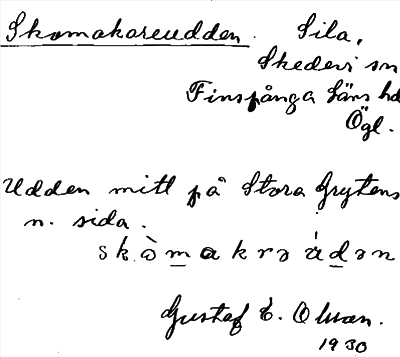 Skomakareudden. Sila,
Skedevi sn
Finspånga läns hd
Ögl.
Udden mitt på Stora Grytens
n. sida.
skò̱makrə ú̱dən
Gustaf E. Olsson.
1930